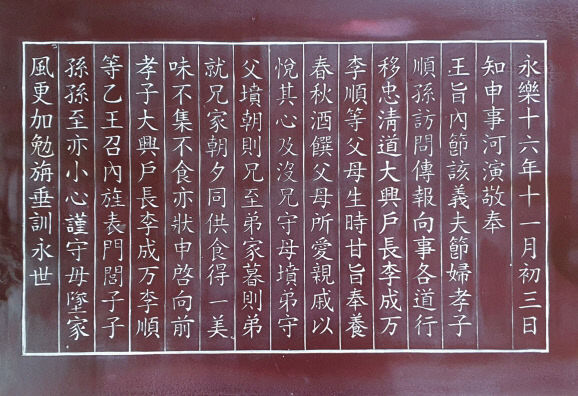 永樂十六年十一月初三日
知申事河演敬奉
王旨內節該義夫節婦孝子
順孫訪問傳報向事各道行
移忠淸道大興戶長李成万
李順等父母生時甘旨奉養
春秋酒饌父母所愛親戚以
悅其心及沒兄守母墳弟守
父墳朝則兄至弟家暮則弟
就兄家朝夕同供食得一美
味不集不食亦狀申啓向前
孝子大興戶長李成万李順
等乙王召內旌表門閭子子
孫孫至亦小心謹守毋墜家
風更加勉旃垂訓永世